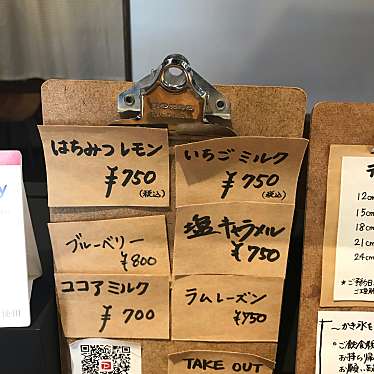 はちみつレモン
¥750
(税込)
いちごミルク
¥750
(税込)
ブルーベリー
¥800
塩キャラメル
¥750
ココアミルク
¥700
ラムレーズン
¥750
TAKE OUT
12cm
15cm
18cm
21cm
24cm
〜かき氷を